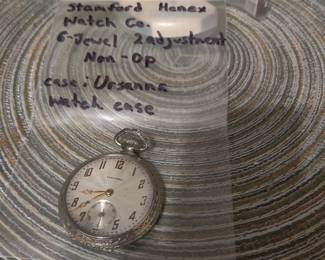 Stamford Henex
Watch Co.
6-Jewel 2adjustment
Non-Op
case: Ursanna
Watch case
12
1
2
3
4
5
7
8
9
10
11